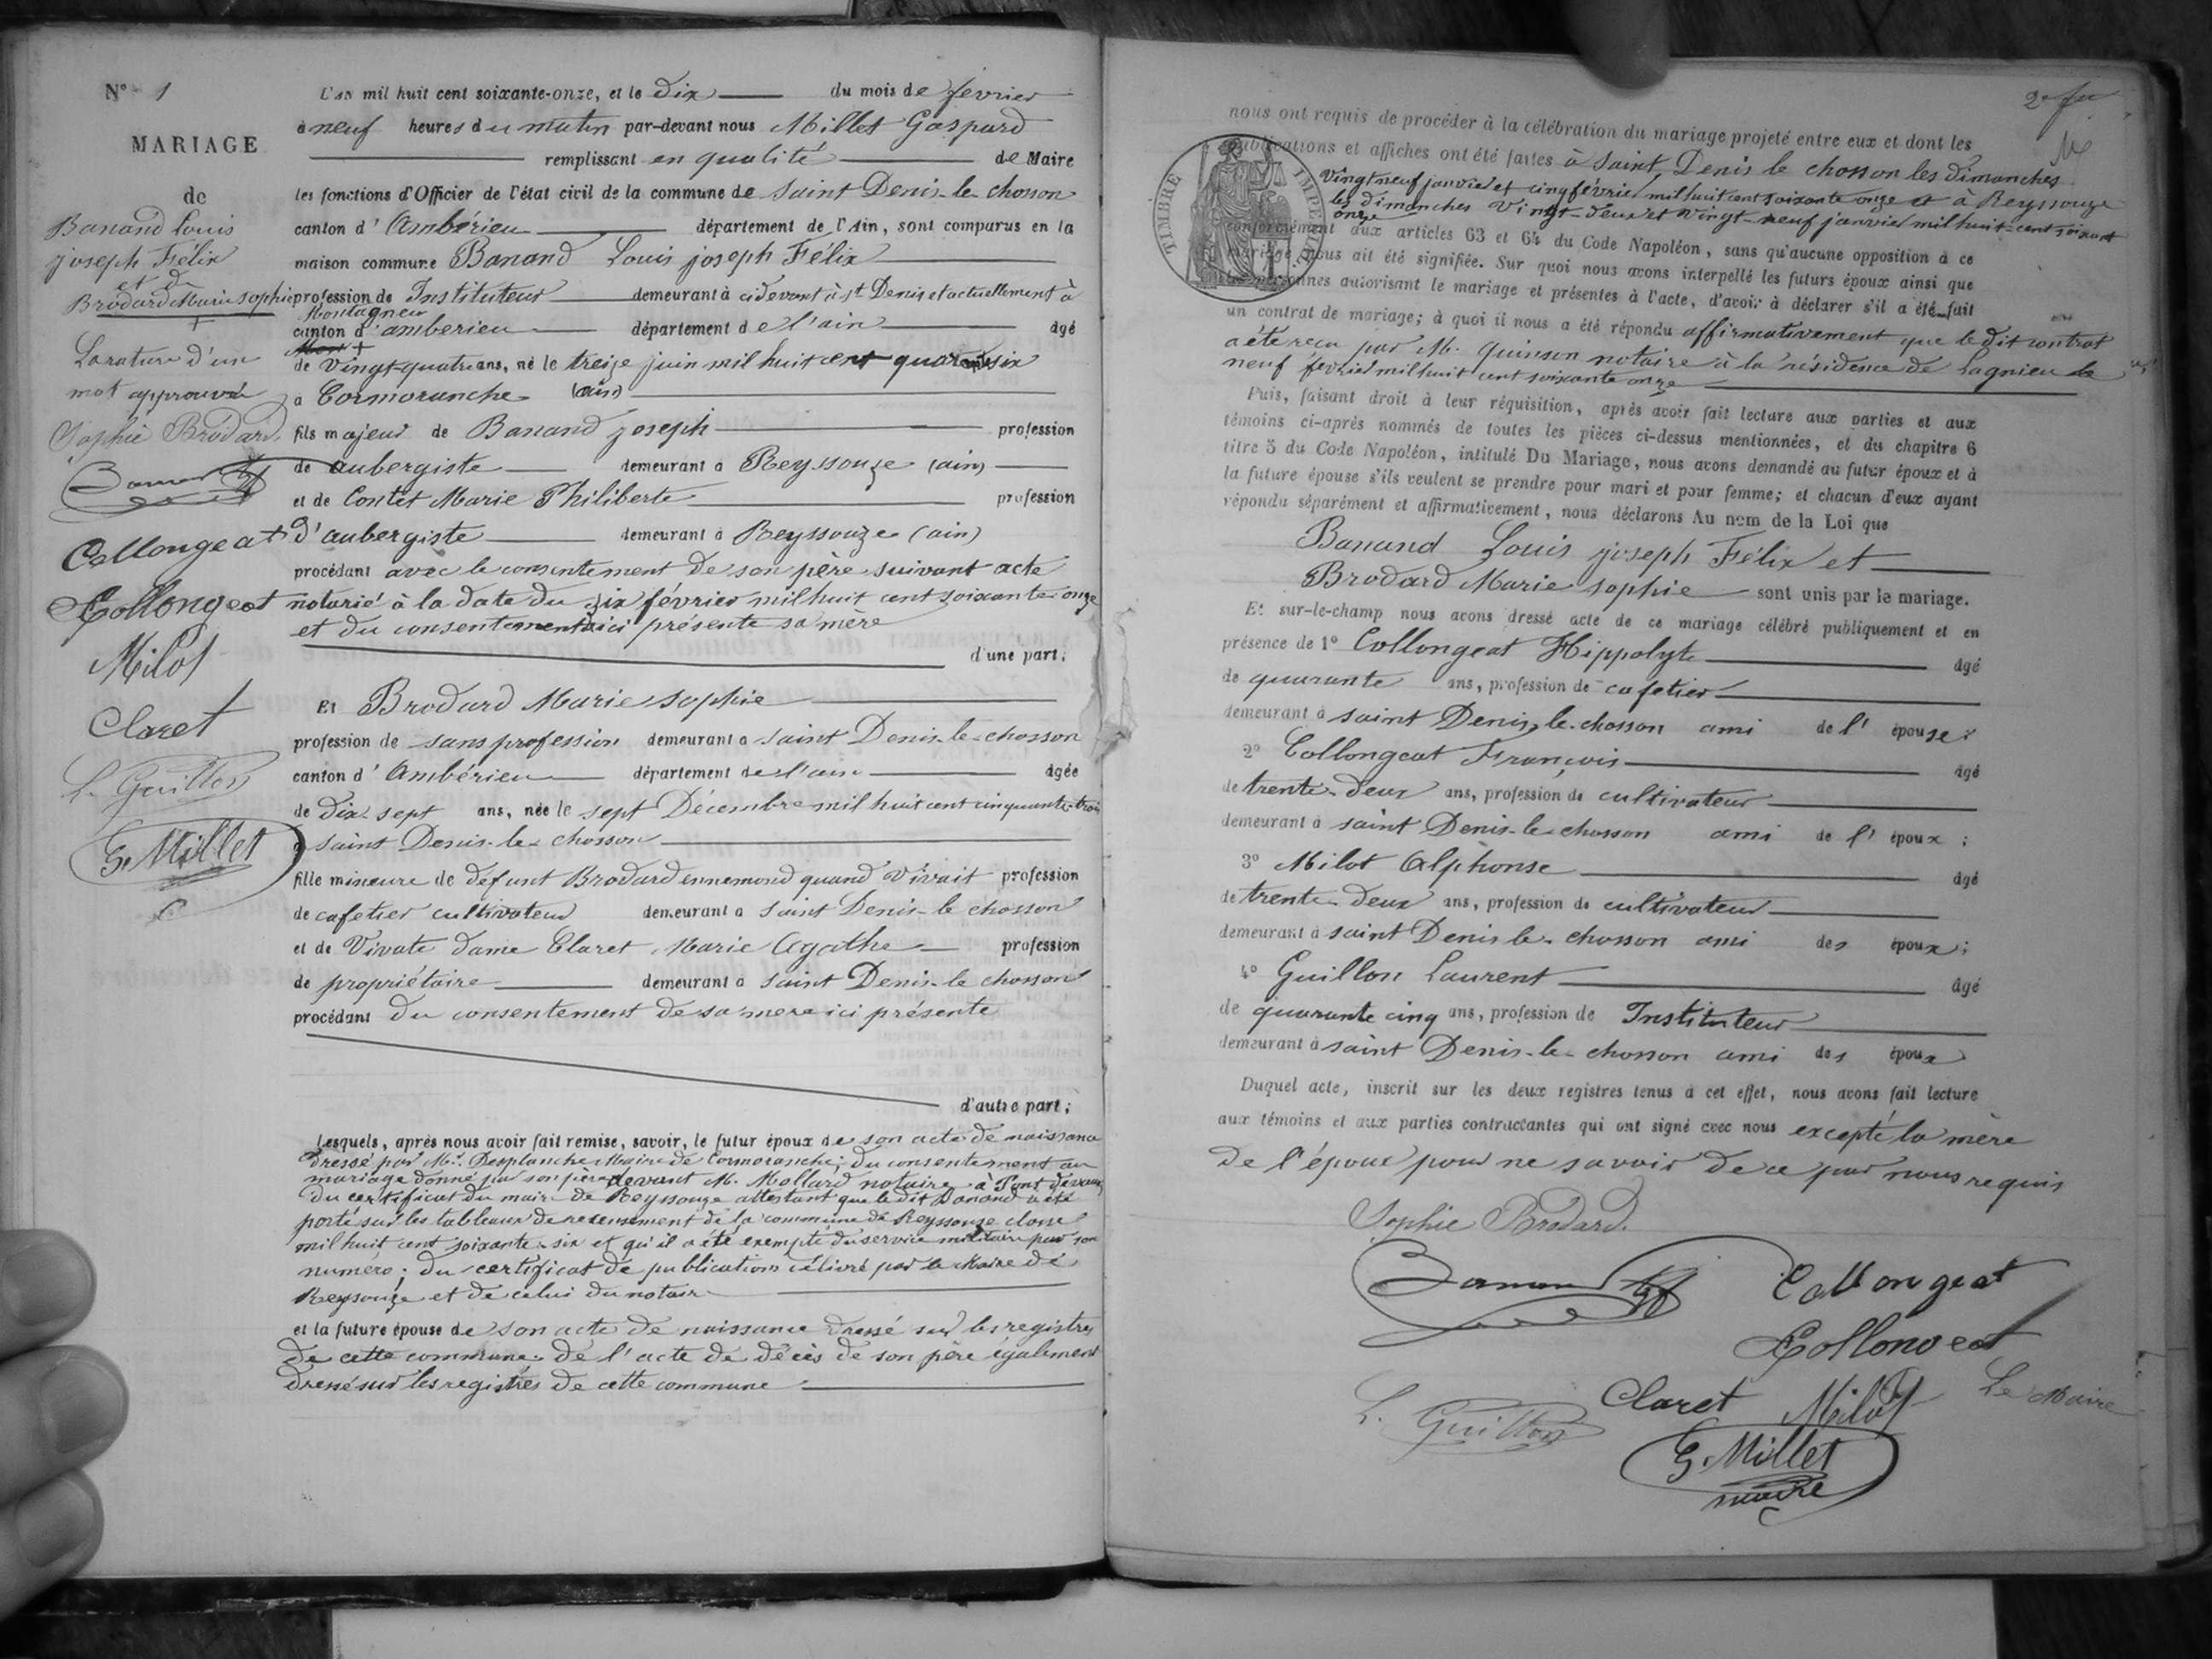 N° 1
MARIAGE
de
Banand Louis
joseph Félix
et de
Brodard Marie sophie
La rature d'un
mot approuvée
Sophie Brodard
Banand
Collongeat
Collongeat
Milot
Claret
L. Guillon
G. Millet
L'an mil huit cent soixante-onze, et le dix du mois de février
à neuf heures du matin par-devant nous Millet Gaspard
remplissant en qualité de Maire
les fonctions d'Officier de l'état civil de la commune de Saint Denis-le-chosson
canton d'Ambérieu département de l'Ain, sont comparus en la
maison commune Banand Louis joseph Félix
profession de Instituteur demeurant à cidevant à st Denis et actuellement à
Montagnieu
canton d'amberieu département de l'ain âgé
de vingt-quatre ans, né le treize juin mil huit cent quarante six
à Cormoranche (ain)
fils majeur de Banand joseph profession
de aubergiste demeurant à Reyssouze (ain)
et de Contet Marie Philiberte profession
d'aubergiste demeurant à Reyssouze (ain)
procédant avec le consentement de son père suivant acte
notarié à la date du six février mil huit cent soixante onze
et du consentement ici présente sa mère
d'une part;
Et Brodard Marie sophie
profession de sans profession demeurant à saint Denis-le-chosson
canton d'Ambérieu département de l'ain âgée
de dix sept ans, née le sept Décembre mil huit cent cinquante trois
à saint Denis-le-chosson
fille mineure de défunt Brodard ennemond quand vivait profession
de cafetier cultivateur demeurant à saint Denis-le chosson
et de Vivate dame Claret Marie Agathe profession
de propriétaire demeurant à saint Denis-le chosson
procédant du consentement de sa mère ici présente
d'autre part;
Lesquels, après nous avoir fait remise, savoir, le futur époux de son acte de naissance
dressé par Mr. Desplanche Maire de Cormoranche; du consentement au
mariage donné par son père devant M. Mollard notaire à Pont devaux
du certificat du maire de Reyssouze attestant que le dit Banand a été
porté sur les tableaux de recensement de la commune de Reyssouze classe
mil huit cent soixante six et qu'il a été exempté du service militaire par son
numéro; du certificat de publications délivré par le Maire de
Reyssouze et de celui du notaire
et la future épouse de son acte de naissance dressé sur les registres
de cette commune: de l'acte de décès de son père également
dressé sur les registres de cette commune
2e fu
nous ont requis de procéder à la célébration du mariage projeté entre eux et dont les
publications et affiches ont été faites à Saint Denis le chosson les dimanches
vingt neuf janvier et cinq février mil huit cent soixante onze et à Reyssouze
les dimanches vingt-deux et vingt-neuf janvier mil huit-cent soixante
onze
conformément aux articles 63 et 64 du Code Napoléon, sans qu'aucune opposition à ce
mariage nous ait été signifiée. Sur quoi nous avons interpellé les futurs époux ainsi que
les personnes autorisant le mariage et présentes à l'acte, d'avoir à déclarer s'il a été fait
un contrat de mariage; à quoi il nous a été répondu affirmativement que le dit contrat
a été reçu par M. Quinson notaire à la résidence de Lagnieu le
neuf février mil huit cent soixante onze
Puis, faisant droit à leur réquisition, après avoir fait lecture aux parties et aux
témoins ci-après nommés de toutes les pièces ci-dessus mentionnées, et du chapitre 6
titre 5 du Code Napoléon, intitulé Du Mariage, nous avons demandé au futur époux et à
la future épouse s'ils veulent se prendre pour mari et pour femme; et chacun d'eux ayant
répondu séparément et affirmativement, nous déclarons Au nom de la Loi que
Banand Louis joseph Félix et
Brodard Marie sophie sont unis par le mariage.
Et sur-le-champ nous avons dressé acte de ce mariage célébré publiquement et en
présence de 1° Collongeat Hippolyte âgé
de quarante ans, profession de cafetier
demeurant à saint Denis le-chosson ami de l'épouse;
2° Collongeat François âgé
de trente-deux ans, profession de cultivateur
demeurant à saint Denis-le-chosson ami de l'époux;
3° Milot Alphonse âgé
de trente-deux ans, profession de cultivateur
demeurant à saint Denis le-chosson ami des époux;
4° Guillon Laurent âgé
de quarante cinq ans, profession de Instituteur
demeurant à saint Denis-le-chosson ami des époux
Duquel acte, inscrit sur les deux registres tenus à cet effet, nous avons fait lecture
aux témoins et aux parties contractantes qui ont signé avec nous excepté la mère
de l'époux pour ne savoir de ce par nous requis
Sophie Brodard
Banand
Collongeat
Collongeat
Claret Milot Le Maire
L. Guillon
G. Millet
maire
TIMBRE IMPERIAL